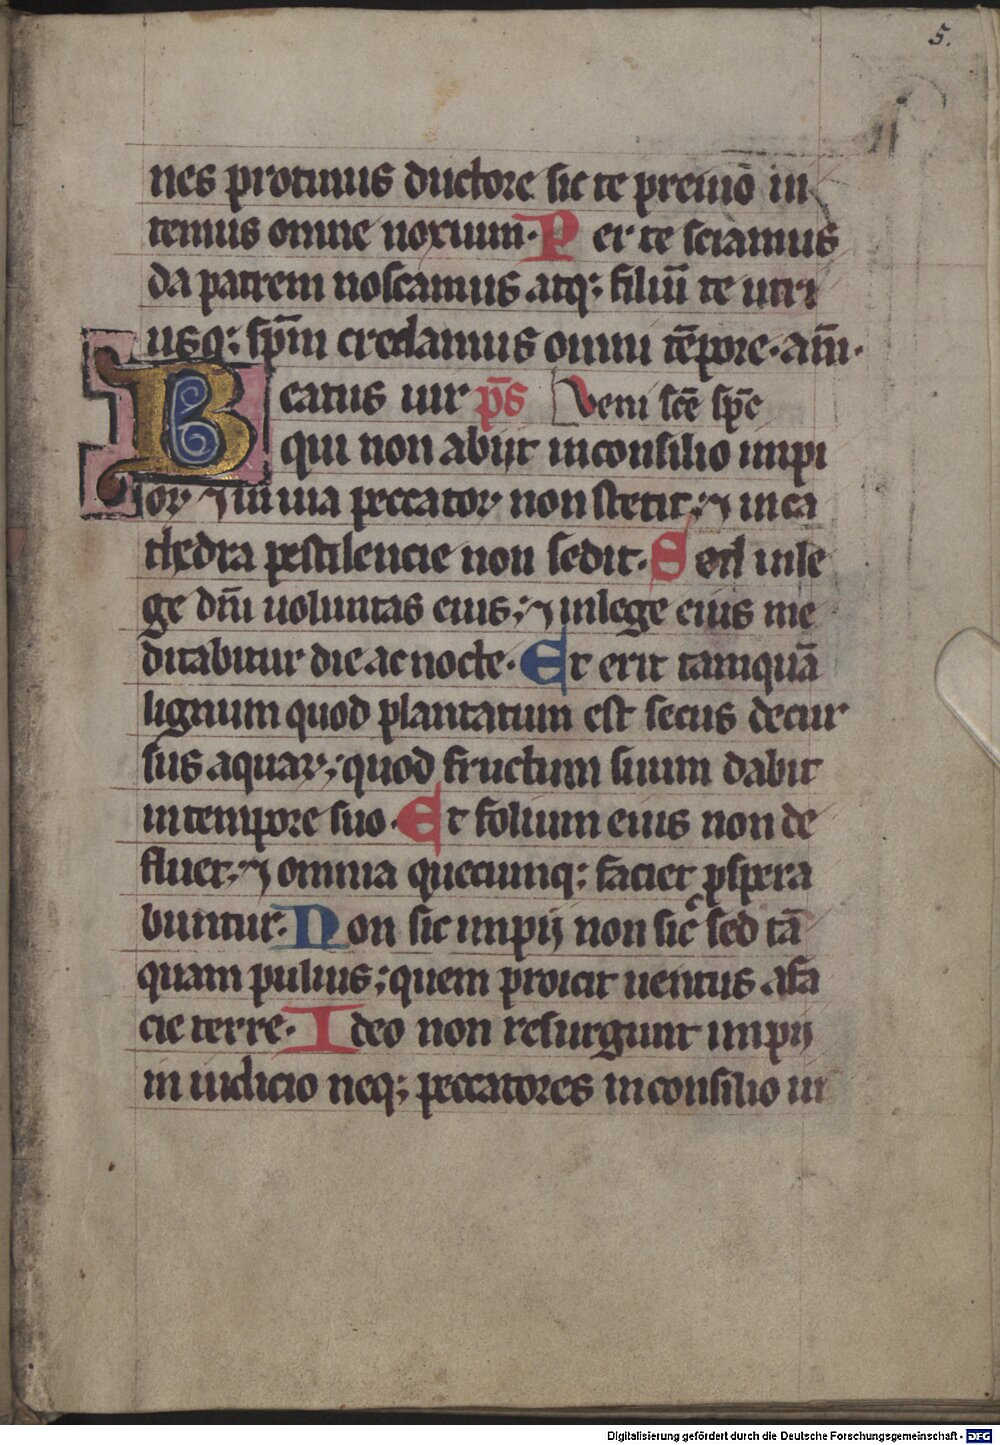 5.
nes protinus ductore sic te preuiō ui
temus omne noxium· Per te sciamus
da patrem noscamus atq; filiū te utri
usq; sp̄m credamus omni tēpore· am̄·
Beatus uir p̄s Veni scē sp̄c
qui non abijt in consilio impi
oꝝ ⁊ in uia peccatoꝝ non stetit; ⁊ in ca
thedra pestilencie non sedit· Sed in le
ge dn̄i uoluntas eius; ⁊ in lege eius me
ditabitur die ac nocte· Et erit tamquā
lignum quod plantatum est secus decur
sus aquaꝝ; quod fructum suum dabit
in tempore suo· Et folium eius non de
fluet; ⁊ omnia quecumq; faciet ꝓspera
buntur· Non sic impij non sic sed tā
quam puluis; quem proicit uentus a fa
cie terre· Ideo non resurgunt impij
in iudicio neq; peccatores in consilio iu
Digitalisierung gefördert durch die Deutsche Forschungsgemeinschaft - DFG